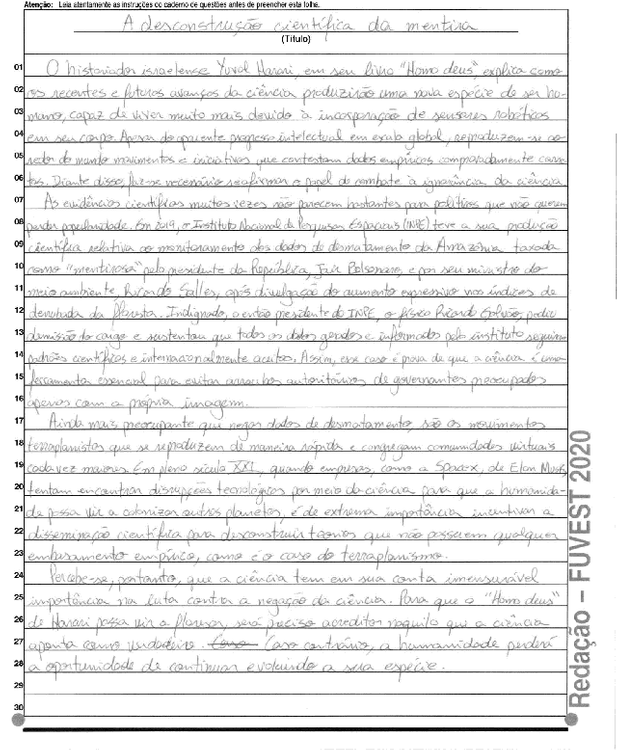 Atenção: Leia atentamente as instruções do caderno de questões antes de preencher esta folha.
A desconstrução científica da mentira
(Título)
01 O historiador israelense Yuval Harari, em seu livro "Homo deus", explica como
02 os recentes e futuros avanços da ciência produzirão uma nova espécie de ser hu-
03 mano, capaz de viver muito mais devido à incorporação de sensores robóticos
04 em seu corpo. Apesar do aparente progresso intelectual em escala global, reproduzem-se ao
05 redor do mundo movimentos e iniciativas que contestam dados empíricos comprovadamente corre-
06 tos. Diante disso, faz-se necessário reafirmar o papel de combate à ignorância da ciência.
07 As evidências científicas muitas vezes não parecem bastantes para políticos que não querem
08 perder popularidade. Em 2019, o Instituto Nacional de Pesquisas Espaciais (INPE) teve a sua produção
09 científica relativa ao monitoramento dos dados de desmatamento da Amazônia taxada
10 como "mentirosa" pelo presidente da República, Jair Bolsonaro, e por seu ministro do
11 meio ambiente, Ricardo Salles, após divulgação do aumento expressivo nos índices de
12 derrubada da floresta. Indignado, o então presidente do INPE, o físico Ricardo Galvão, pediu
13 demissão do cargo e sustentou que todos os dados gerados e informados pelo instituto seguiam
14 padrões científicos e internacionalmente aceitos. Assim, esse caso é prova de que a ciência é uma
15 ferramenta essencial para evitar arroubos autoritários de governantes preocupados
16 apenas com a própria imagem.
17 Ainda mais preocupante que negar dados de desmatamento, são os movimentos
18 terraplanistas que se reproduzem de maneira rápida e congregam comunidades virtuais
19 cada vez maiores. Em pleno século XXI, quando empresas, como a SpaceX, de Elon Musk,
20 tentam encontrar disrupções tecnológicas por meio da ciência para que a humanida-
21 de possa vir a colonizar outros planetas, é de extrema importância incentivar a
22 disseminação científica para desconstruir teorias que não possuem qualquer
23 embasamento empírico, como é o caso do terraplanismo.
24 Percebe-se, portanto, que a ciência tem em sua conta imensurável
25 importância na luta contra a negação da ciência. Para que o "Homo deus"
26 de Harari possa vir a florescer, será preciso acreditar naquilo que a ciência
27 aponta como verdadeiro. Caso contrário, a humanidade perderá
28 a oportunidade de continuar evoluindo a sua espécie.
29
30
Redação – FUVEST 2020